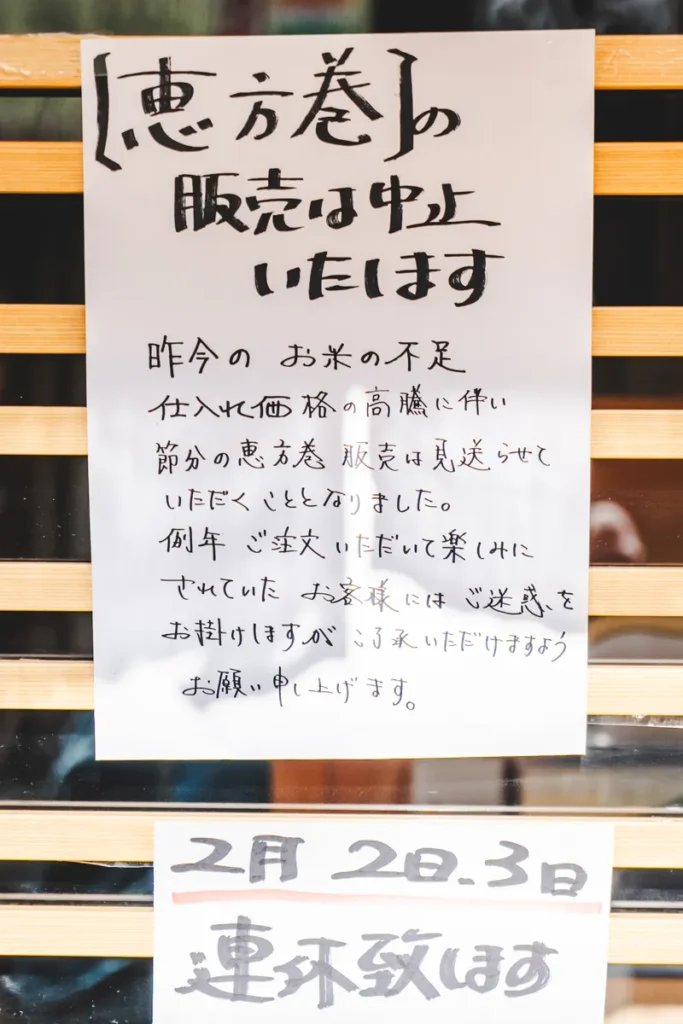 [恵方巻]の
販売は中止
いたします
昨今の お米の不足
仕入れ価格の高騰に伴い
節分の恵方巻 販売は見送らせて
いただくこととなりました。
例年 ご注文いただいて楽しみに
されていた お客様には ご迷惑を
お掛けしますが ご了承いただけますよう
お願い申し上げます。
2月 2日、3日
連休致します